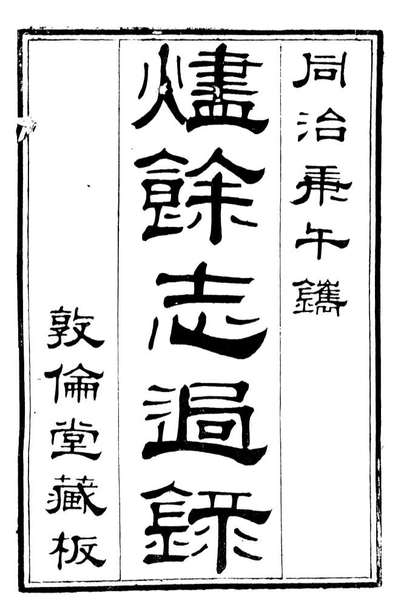 同治庚午鐫
爐餘志過錄
敦倫堂藏板